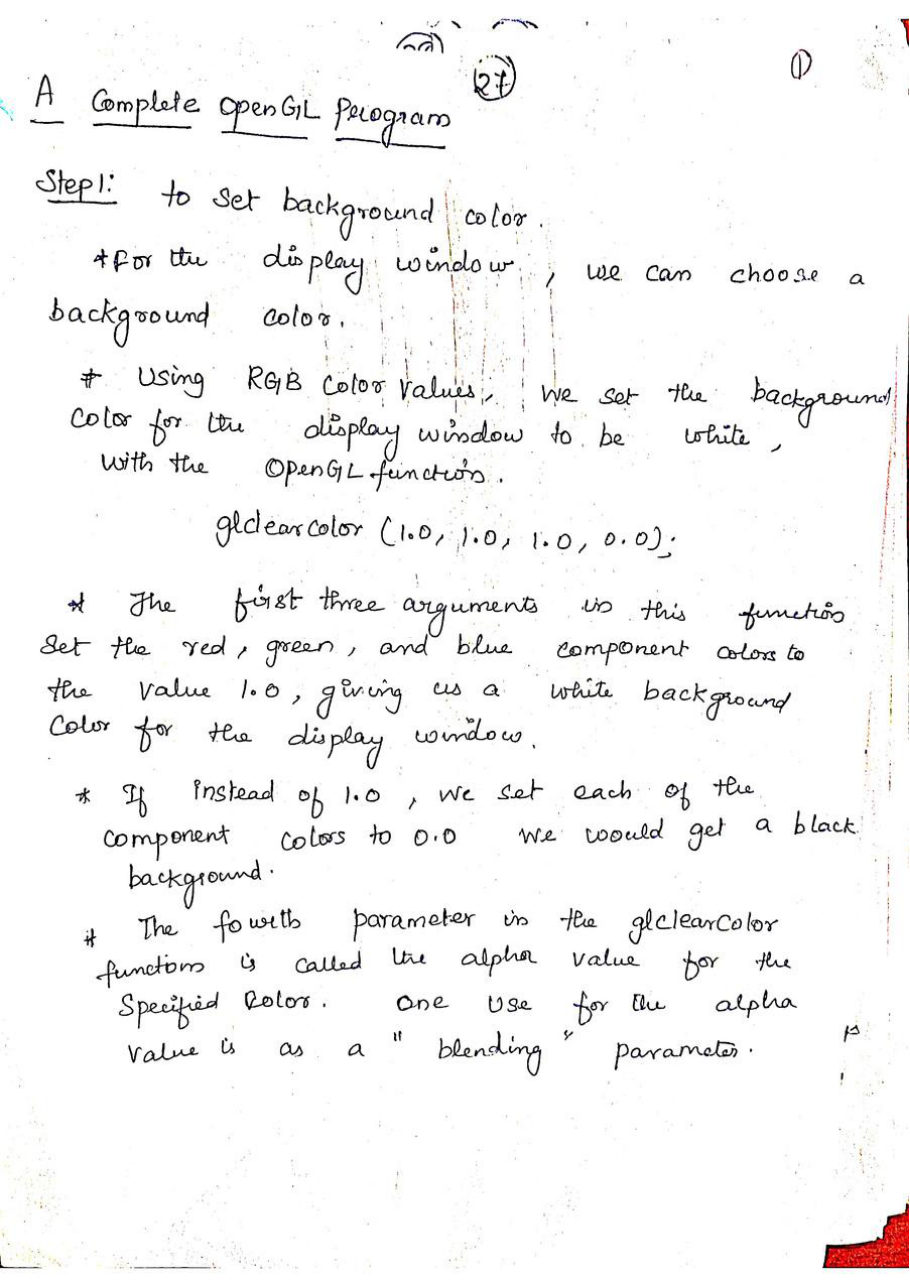 27
①
A Complete OpenGL Program
Step1: to set background color.
*For the display window, we can choose a
background color.
* Using RGB Color Values, we set the background
Color for the display window to be white,
with the OpenGL function.
glclearcolor (1.0, 1.0, 1.0, 0.0);
* The first three arguments in this function
Set the red, green, and blue component colors to
the value 1.0, giving us a white background
Color for the display window.
* If instead of 1.0, we set each of the
component colors to 0.0 we would get a black
background.
* The fourth parameter in the glclearColor
function is called the alpha value for the
Specified Color. One use for the alpha
value is as a "blending" parameter.